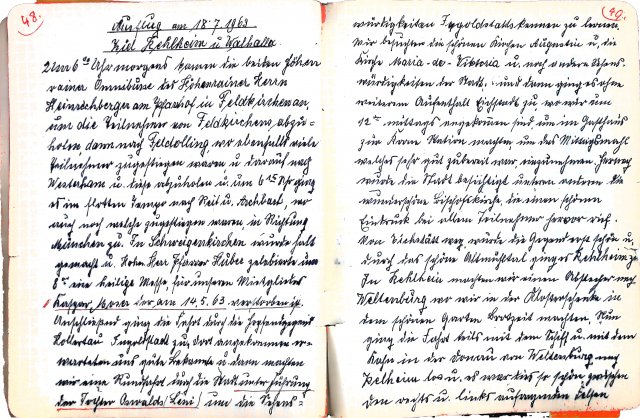 48.
Ausflug am 18.7.1963
Ziel Kehlheim u. Walhalla
Um 6 Uhr morgens kamen die beiden Höhen-
rainer Omnibusse der Höhenrainer Herrn
Heinrichsberger am Pfarrhof in Feldkirchen an,
um die Teilnehmer von Feldkirchen abzu-
holen dann nach Feldolling, wo ebenfalls viele
Teilnehmer zugestiegen waren u. darauf nach
Westerham u. diese abzuholen u. um 6 Uhr ging
es im flotten Tempo nach u. Aschbach, wo
auch noch welche zugestiegen waren, in Richtung
München zu. In Schweigenkirchen wurde halt
gemacht u. Hohw. Herr Pfarrer Huber zelebrierte um
8 eine heilige Messe für unseren Mitgliedes
Kaspar der am 14.5.63 verstorben ist.
Anschließend ging die Fahrt durch die Hopfengegend
Hollertau Ingolstadt zu, dort angekommen er-
warteten uns gute Bekannte u. dann machten
wir eine Rundfahrt durch die Stadt unter Führung
der Tochter Oswalds (Leni) um die Sehens-
49.
würdigkeiten Ingolstadts kennen zu lernen.
Wir besuchten die schönen Kirchen Augustin u. die
Kirche Maria-de-Viktoria u. noch andere Sehens-
würdigkeiten der Stadt, und dann ging es ohne
weiterem Aufenthalt Eichstädt zu, wo wir um
12 mittags angekommen sind um im Gasthaus
zur Krone Station machten um das Mittagsmahl
welches sehr gut zubereitet war, einzunehmen. Hernach
wurde die Stadt besichtigt unter anderem die
wunderschöne Bischofskirche, die einen schönen
Eindruck bei allen Teilnehmer hervor rief.
Von Eichstätt weg wurde die Gegend erst schön u.
durch das schöne Altmühltal ging es Kehlheim zu.
In Kehlheim machten wir einen Abstecher nach
Weltenburg wo wir in der Klosterschenke in
dem schönen Garten Brotzeit machten. Nun
ging die Fahrt teils mit dem Schiff u. mit dem
Kahn in der Donau von Weltenburg nach
Kelheim los u. es war so schön zwischen
den rechts u. links aufragenden Felsen